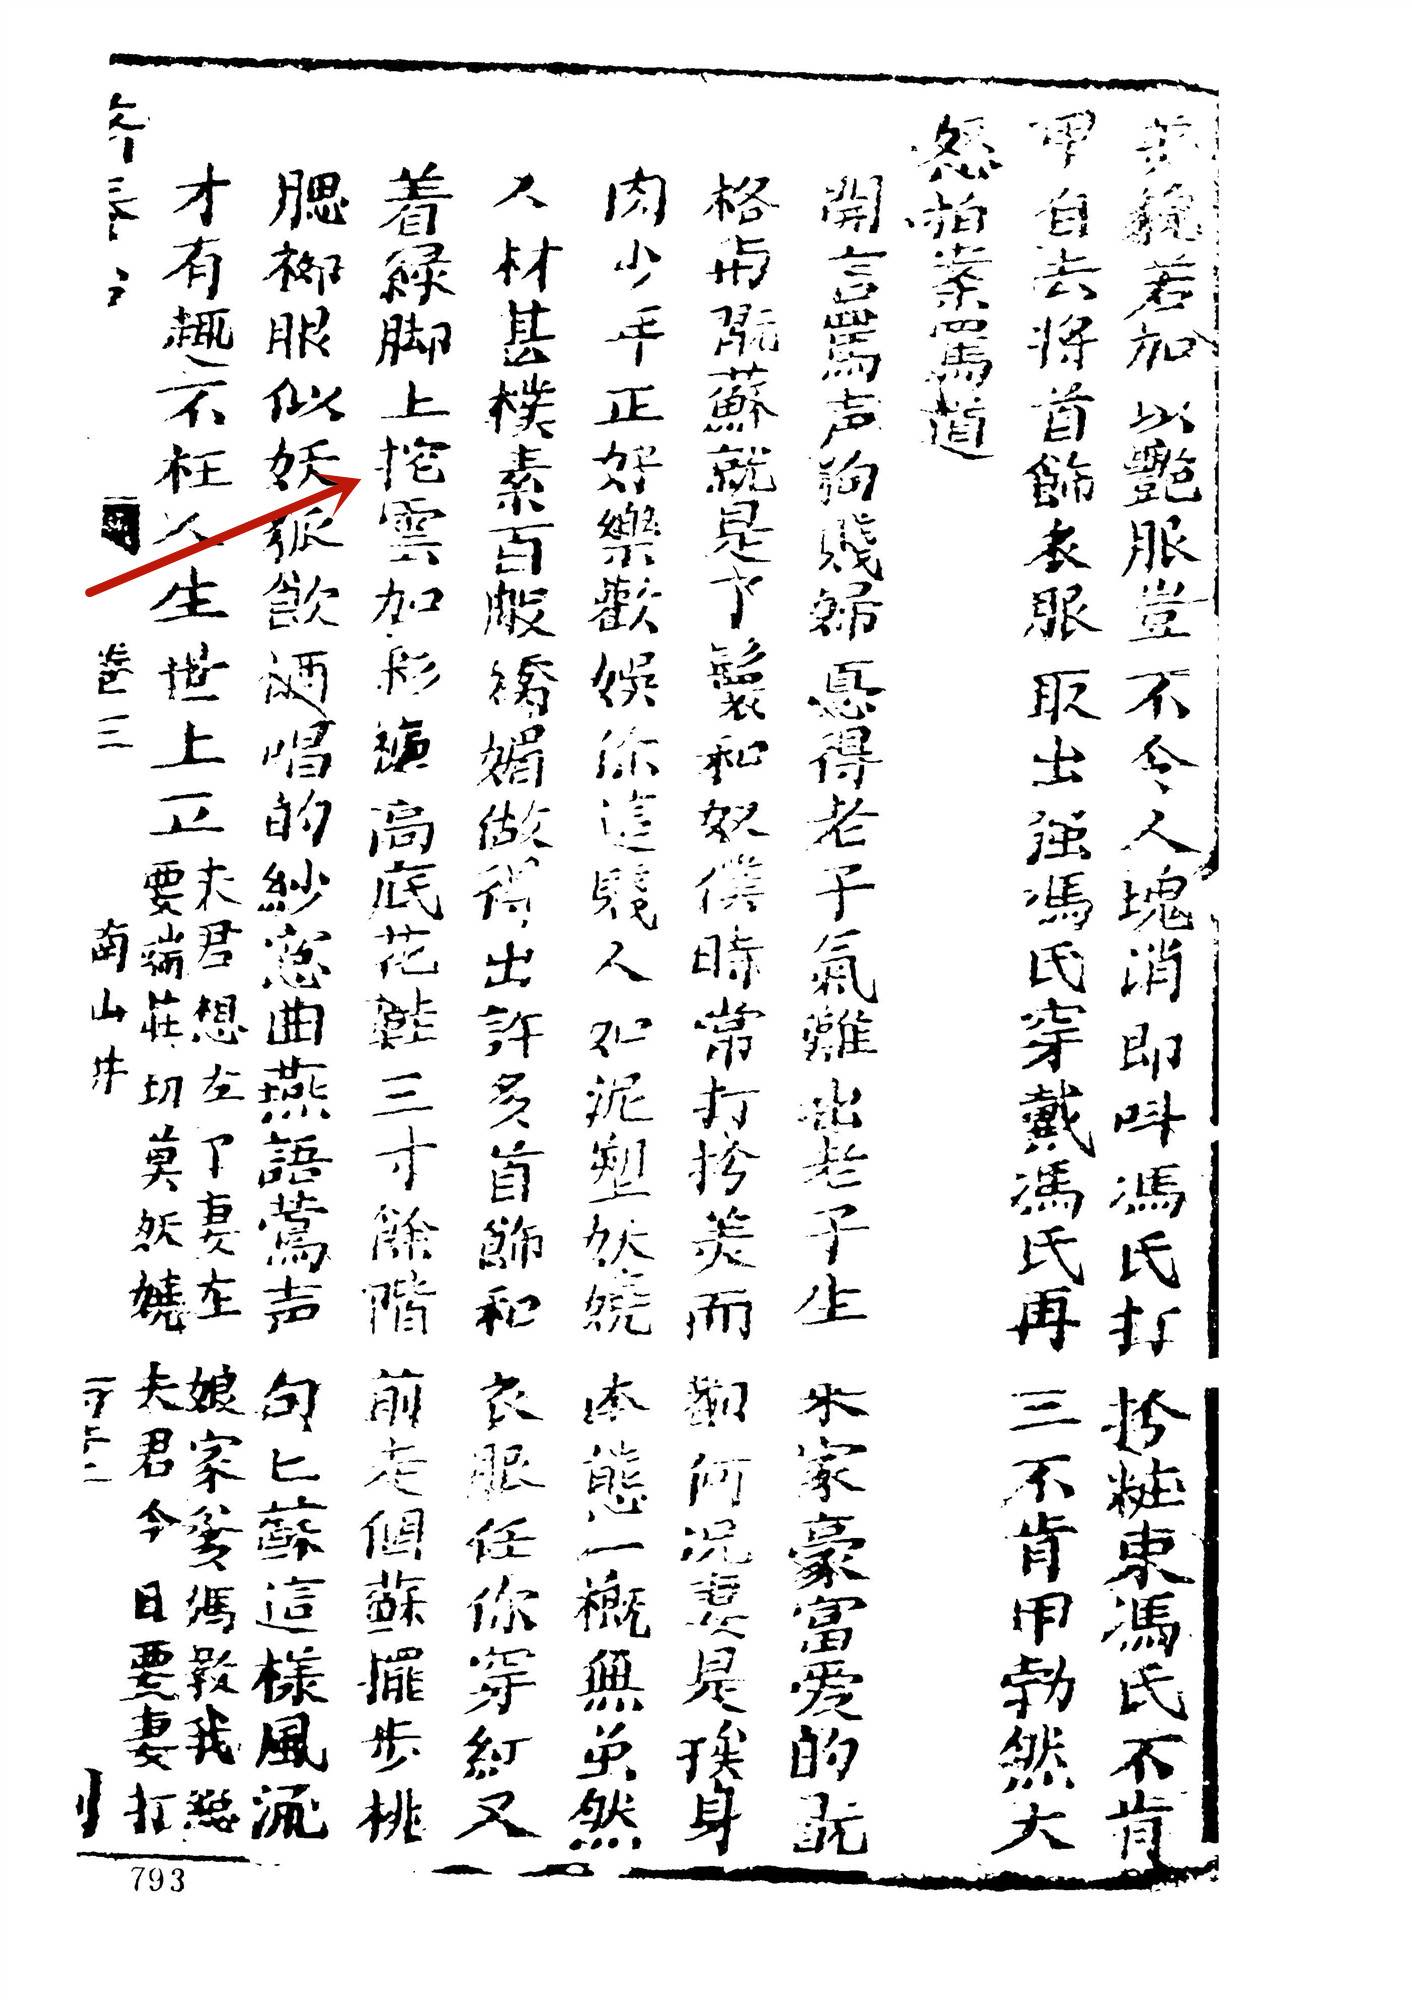 若加以艷服豈不令人塊消即呌馮氏打扮粧束馮氏不肯
甲自去将首飾衣服取出强馮氏穿戴馮氏再三不肯甲勃然大
怒拍案罵道
開言罵声狗賤婦惪得老子氣難出老子生木家豪富爱的
格外就是丫鬟和奴僕時常打扮美而何况妻是挨身
肉少年正好樂歡娛你這賤人如泥塑妖嬈体態一概無虽然
人材甚樸素百般媚做得出許多首飾和衣服任你穿紅又
着綠脚上挖雲加彩高底花鞋三寸餘階前走個蘇擺步桃
腮柳眼似妖狐飲酒唱的紗窓曲燕語鶯声句匕蘇這樣風流
才有趣不枉人生世上立夫君想左了妻在娘家爹媽教我總
要端莊切莫妖嬈夫君今日要妻打
卷三
南山井
793